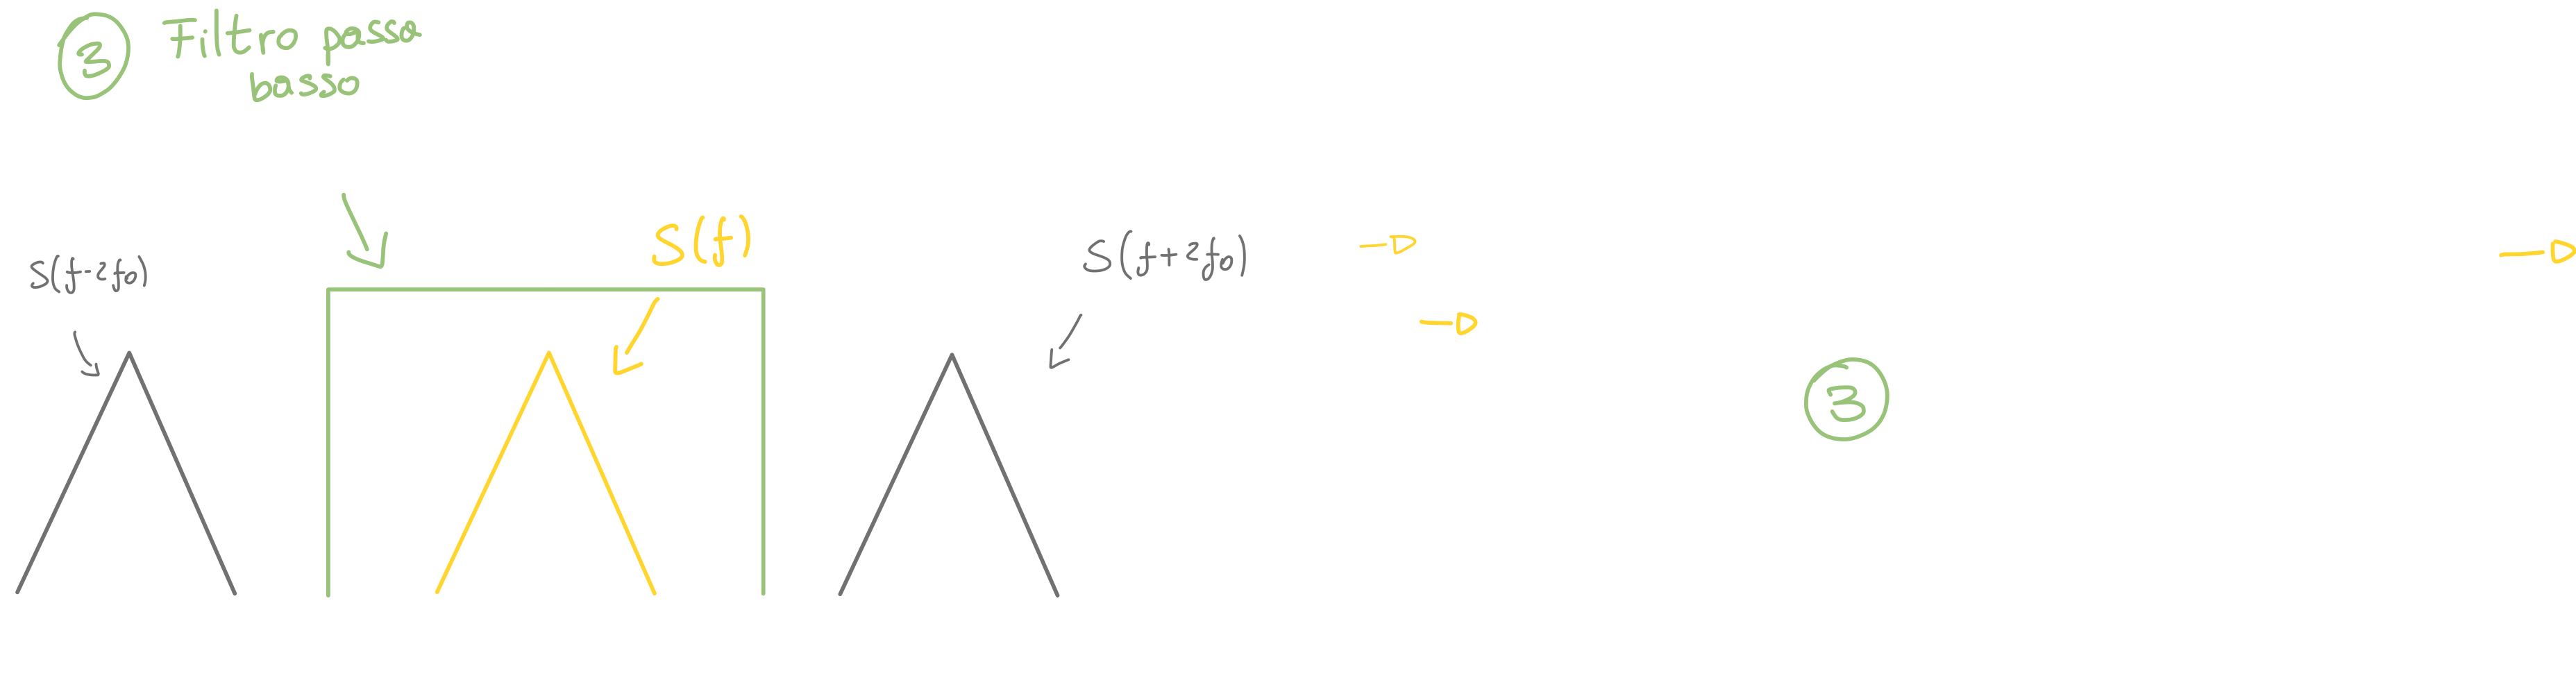 3 Filtro passa
basso
S(f-2fo)
S(f)
S(f+2fo)
3